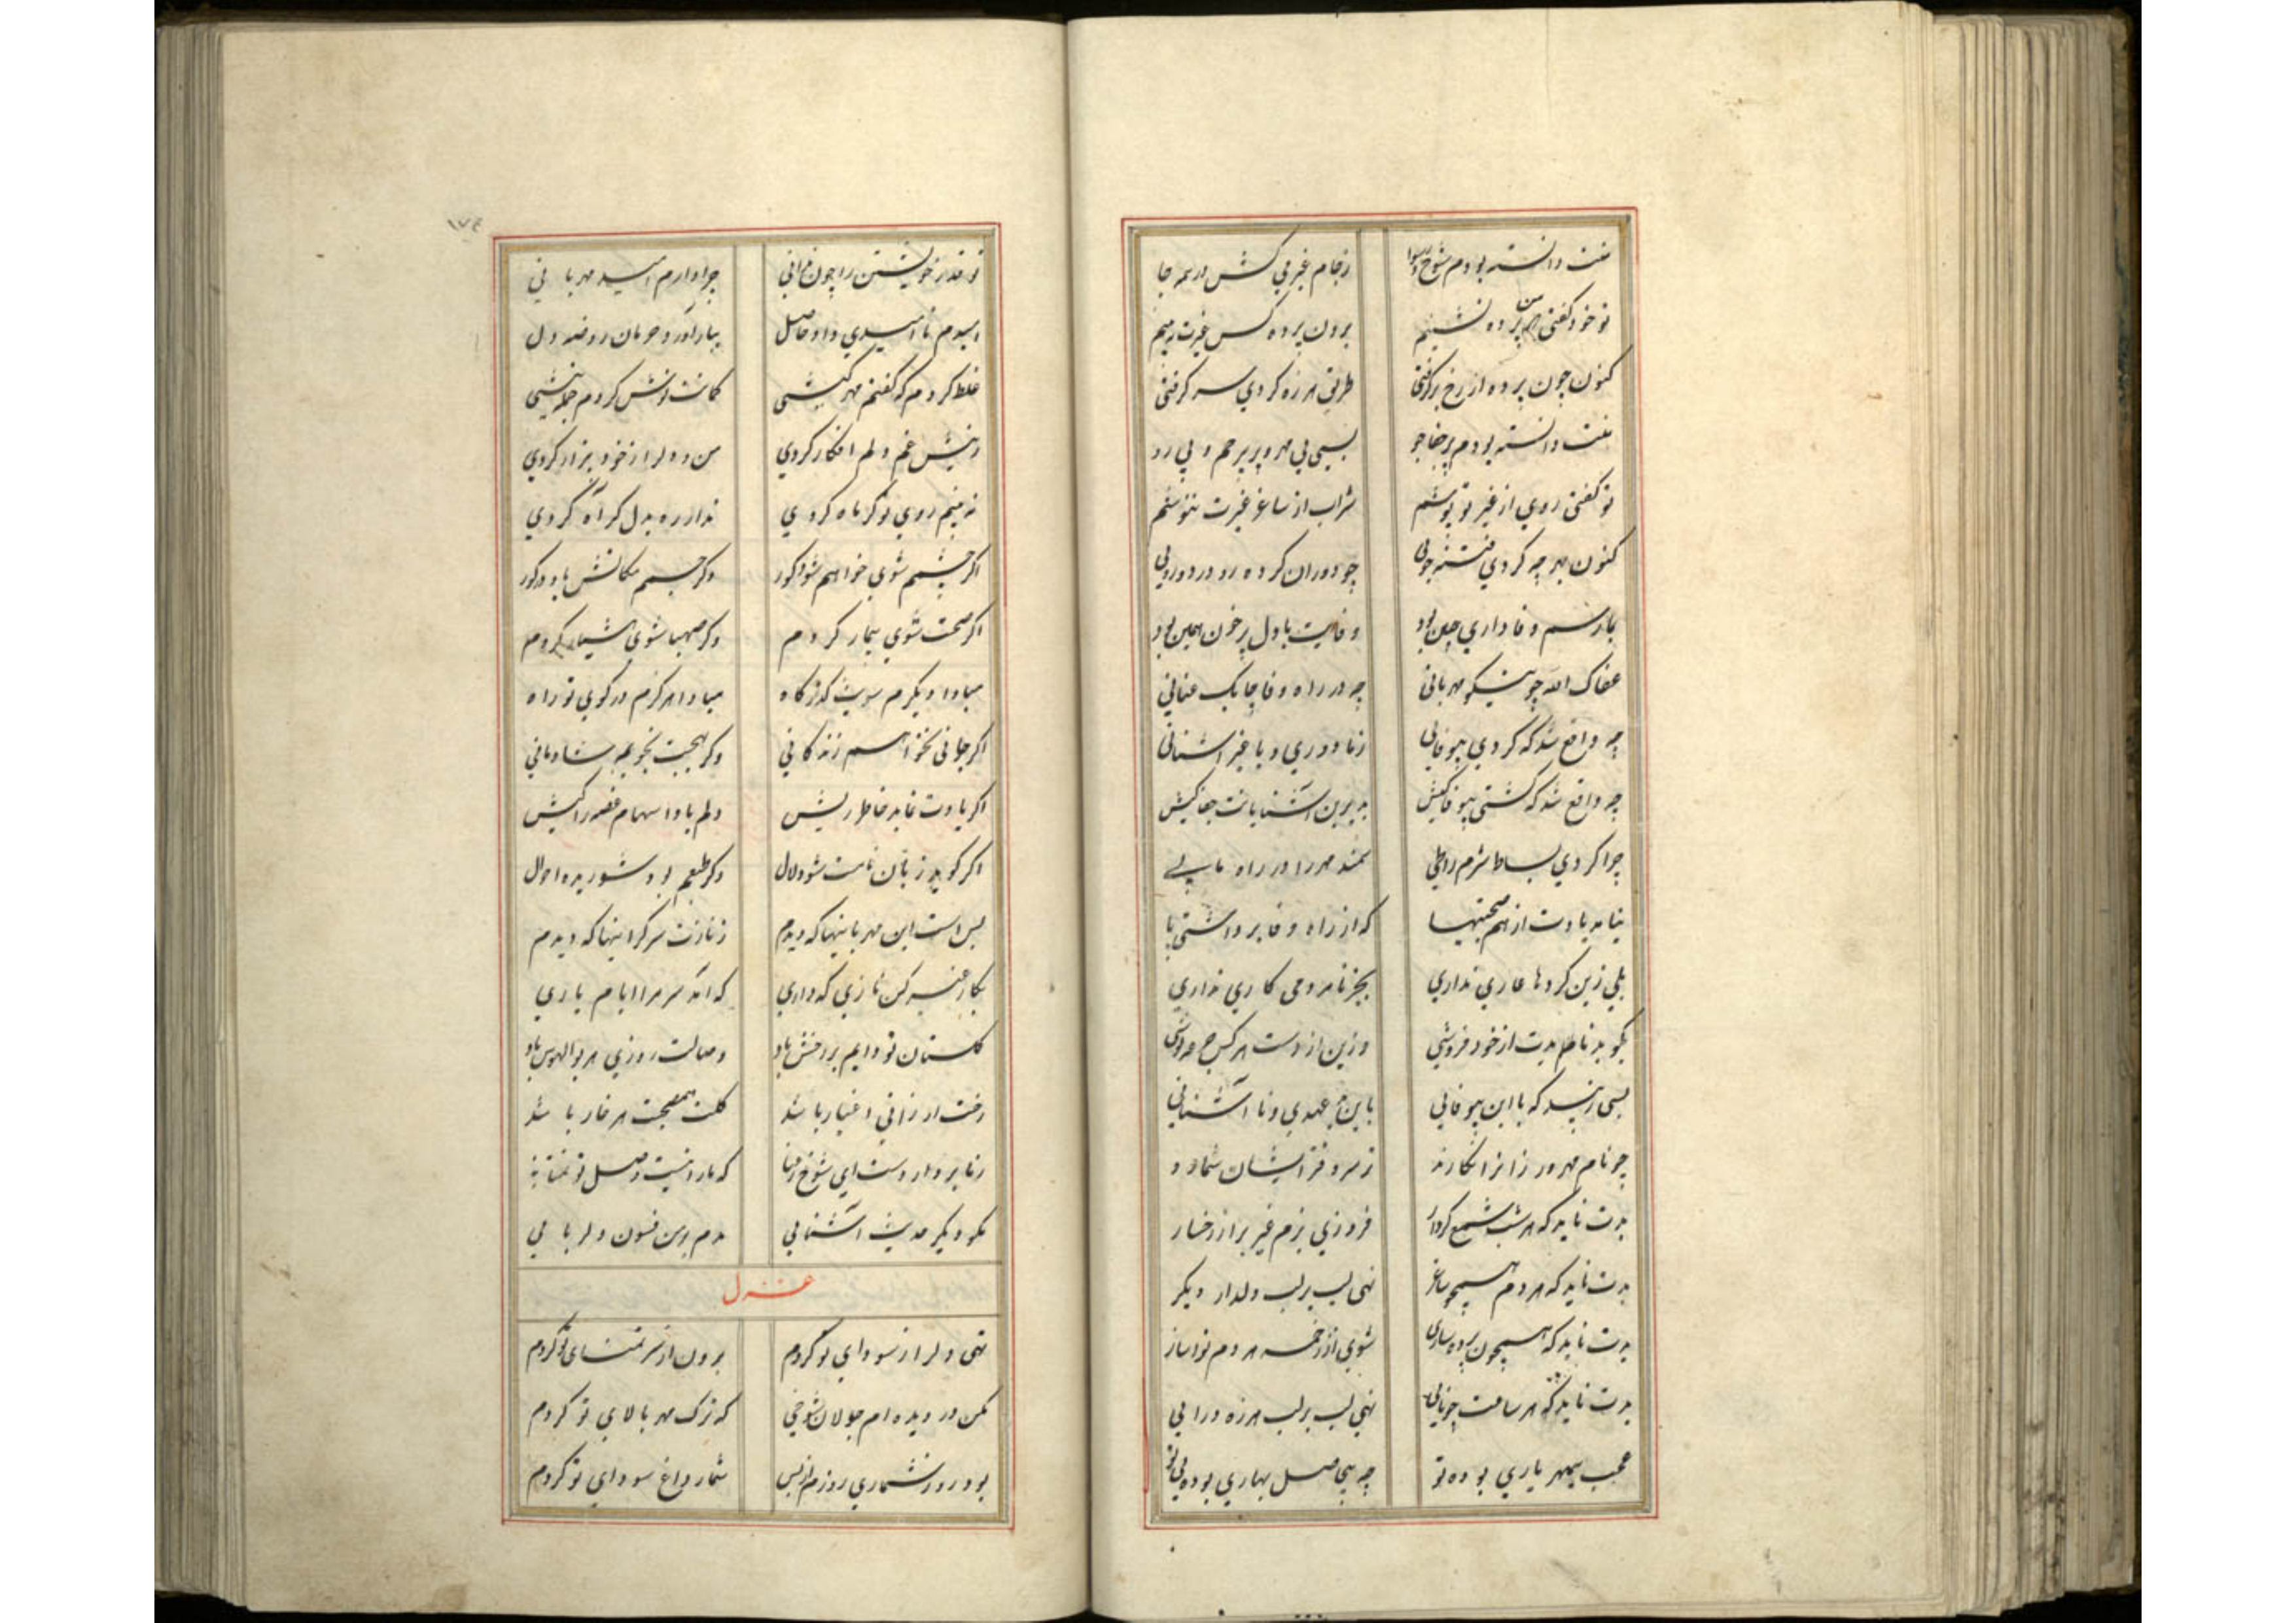 منت دانسته بودم شوخ رسوا زجام غیر می کش در همه جا
تو خود گفتی که من پرده نشینم برون پرده کس غیرت نبینم
کنون چون پرده از رخ برگرفتی طریق هرزه گردی سر گرفتی
منت دانسته بودم پر جفا جو بسی بی مهر و پر بیرحم و بی رو
تو گفتی روی از غیر تو پوشم شراب از ساغر غیرت ننوشم
کنون بهر چه کردی فتنه جویی چو دوران کرده رو در دورویی
بما رسم وفاداری چنین بود وفایت با دل پر خون همین بود
عفاک الله چو نیکو مهربانی چه در راه وفا چابک عنانی
چه واقع شد که کردی بیوفایی زما دوری و با غیر آشنایی
چه واقع شد که گشتی بیوفا کیش بدیرین آشنایانت جفا کیش
چرا کردی بساط شرم را طی سمند مهر را در راه ما پی
نیامد یادت از هم صحبتیها که از راه وفا برداشتی پا
بلی زین کردها عاری نداری بجز نامردمی کاری نداری
بسی زیبد که با این بیوفایی باین بد عهدی و ناآشنایی
چو نام مهرورزان را نگارند ز سر دفتر ایشان شمارند
بدت ناید که هر شب شمع کردار فروزی بزم غیر از رخسار
بدت ناید که هر دم همچو ساغر نهی لب بر لب دلدار دیگر
بدت ناید که همچون پرده ساری شوی از زخمه هر دم نواساز
بدت ناید که هر ساعت چو نایی نهی لب بر لب هرزه درایی
عجب بیمهر یاری بوده تو چه بیحاصل بهاری بوده تو
تو قدر خویشتن را چون ندانی چرا دارم امید مهربانی
امیدم ناامیدی داد حاصل ببار آورد حرمان روضه دل
غلط کردم که گفتم مهر کیشی گمانت دانش کردم
ز نیش غم دلم افکار کردی من و دلرا ز خود بیزار کردی
نه بینم روی تو گر ماه گردی ندارد ره بدل گر آه گردی
اگر چشمم شوی خواهم شود کور وگر جسمم مکانش باد در گور
اگر صحت شوی بیمار گردم وگر صهبا شوی هشیار گردم
مبادا دیگرم سویت گذرگاه مبادا هرگزم در کوی تو راه
اگر جانی نخواهم زندگانی وگر بهجت نجویم شادمانی
اگر یادت نماید خاطر ریش دلم بادا سهام غصه را کیش
اگر گوید زبان نامت شود لال وگر طبعم بود شوریده احوال
بس است این مهربانیها که دیدم ز نازت سرگرانیها که دیدم
بکار غیر کن نازی که داری که آمد سر مرا ایام یاری
گلستان تو دایم پر ز خس باد وصالت روزی هر بوالهوس باد
رخت ارزانی اغیار باشد گلت همصحبت هر خار باشد
ز ما بردار دست ای شوخ رعنا که ما را نیست وصل تو تمنا
مگو دیگر حدیث آشنایی مدم این فسون دلربایی
غزل
تهی دلرا ز سودای تو کردم برون از سر تمنای تو کردم
مکن در دیده ام جولان شوخی که ترک مهر بالای تو کردم
بود روز شماری روزم از بس شمار داغ سودای تو کردم